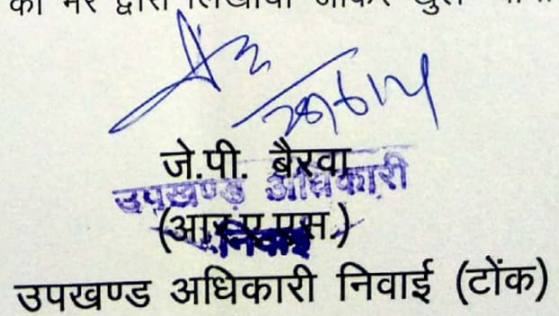 को मेरे द्वारा लिखाया जाकर खुले
जे.पी. बैरवा
उपखण्ड अधिकारी
(आर.ए.एस.)
निवाई
उपखण्ड अधिकारी निवाई (टोंक)